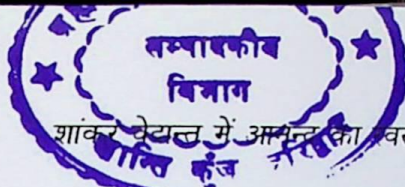 सम्पादकीय
विभाग
शांकर वेदान्त में आनन्द का स्व
शान्ति कुंज हरिद्वार